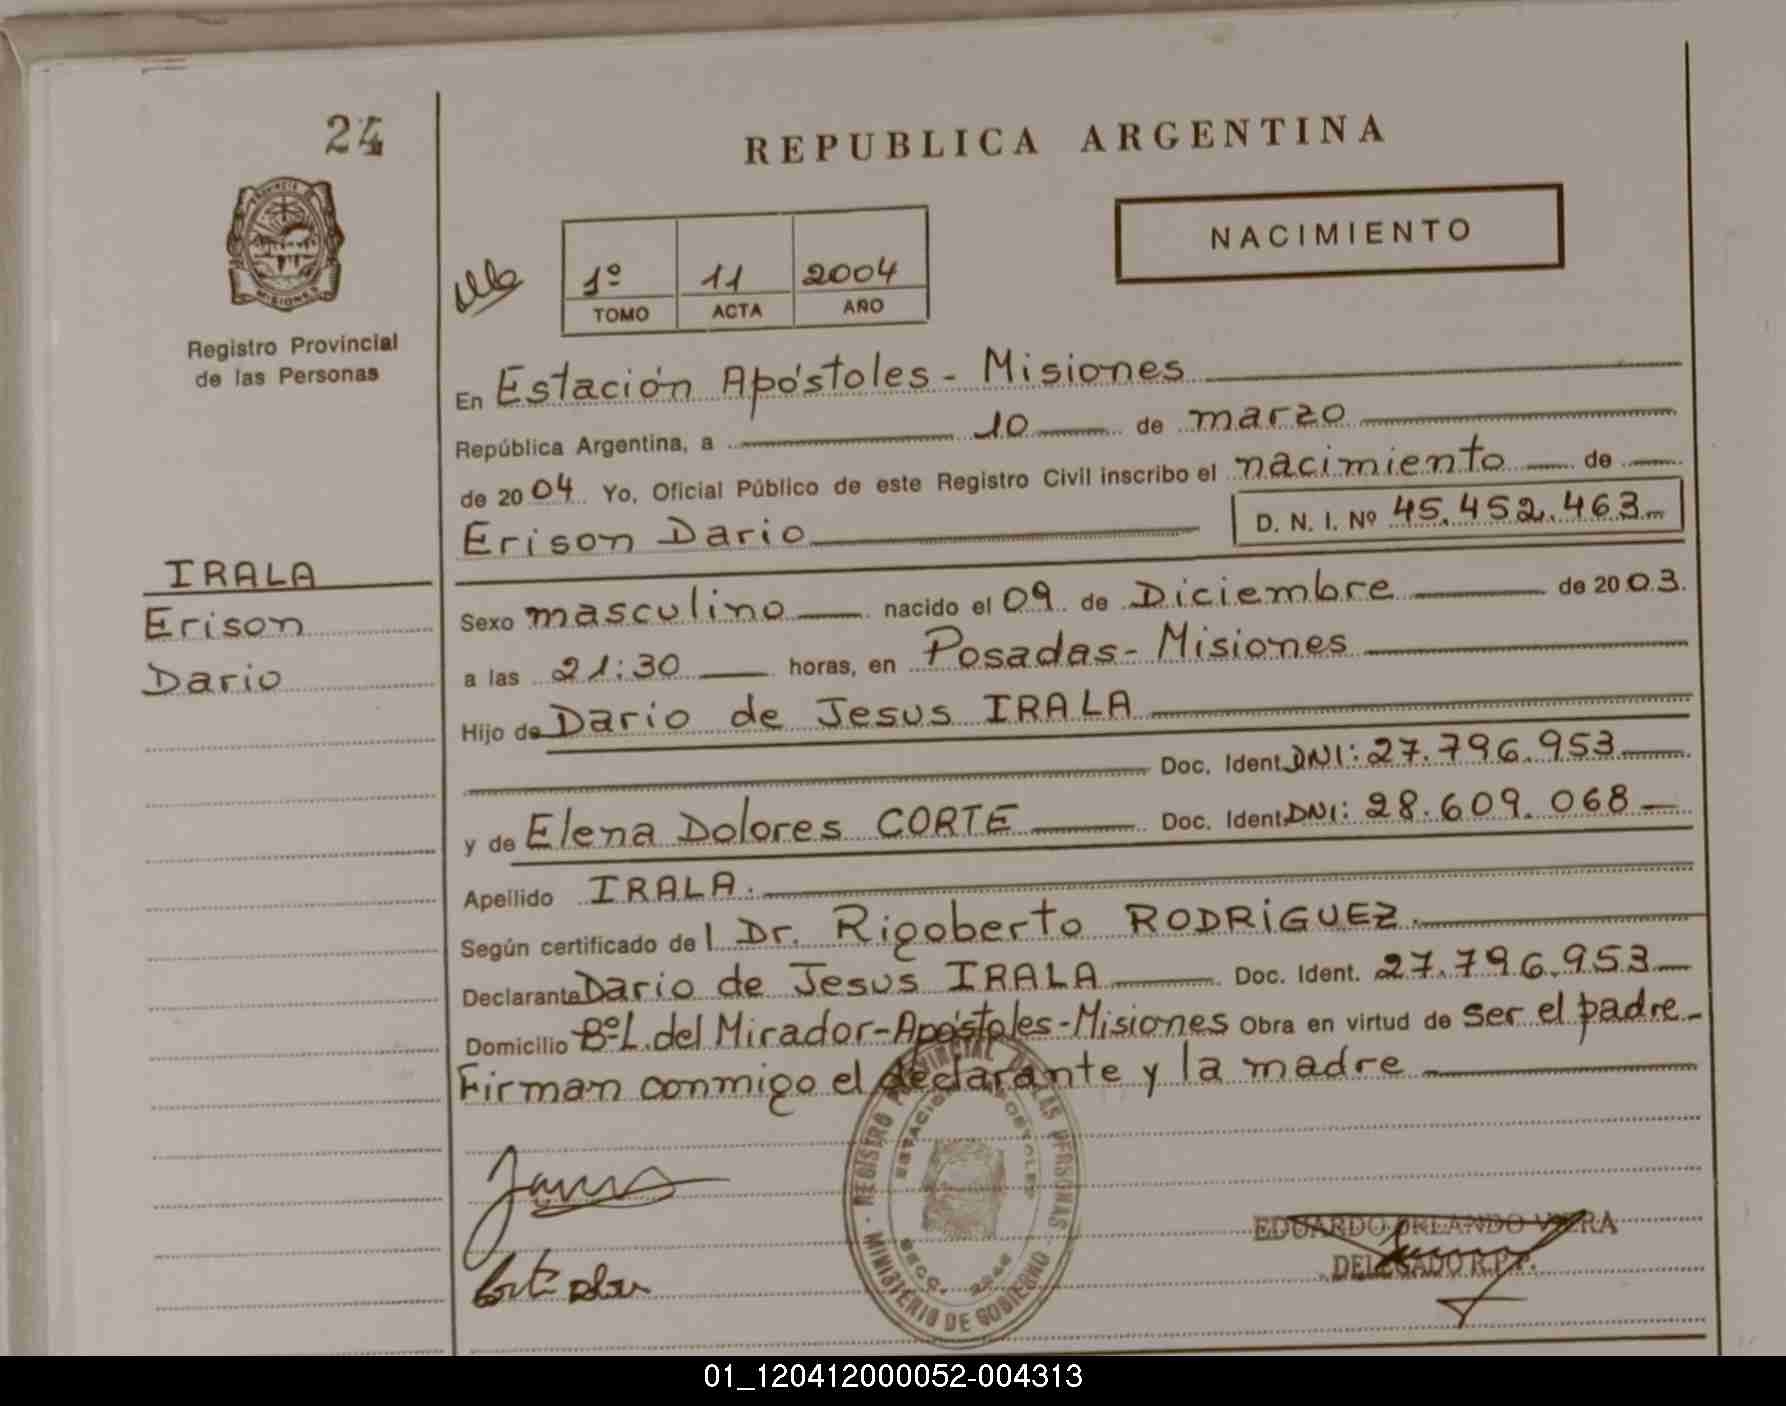 24
REPUBLICA ARGENTINA
PROVINCIA DE
MISIONES
Registro Provincial
de las Personas
NACIMIENTO
1º 11 2004
TOMO ACTA AÑO
En Estación Apóstoles - Misiones
República Argentina, a 10 de marzo
de 2004 Yo, Oficial Público de este Registro Civil inscribo el nacimiento de
Erison Dario D. N. I. Nº 45.452.463
IRALA
Erison
Dario
Sexo masculino nacido el 09 de Diciembre de 2003.
a las 21:30 horas, en Posadas - Misiones
Hijo de Dario de Jesus IRALA
Doc. Ident. DNI: 27.796.953
y de Elena Dolores CORTE Doc. Ident. DNI: 28.609.068
Apellido IRALA.
Según certificado del Dr. Rigoberto RODRiGUEZ.
Declarante Dario de Jesus IRALA Doc. Ident. 27.796.953
Domicilio BºL. del Mirador - Apóstoles - Misiones Obra en virtud de ser el padre -
Firman conmigo el declarante y la madre
REGISTRO PROVINCIAL DE LAS PERSONAS
ESTACION APOSTOLES
MINISTERIO DE GOBIERNO
EDUARDO ORLANDO VIERA
DELEGADO R.P.P.
01_120412000052-004313